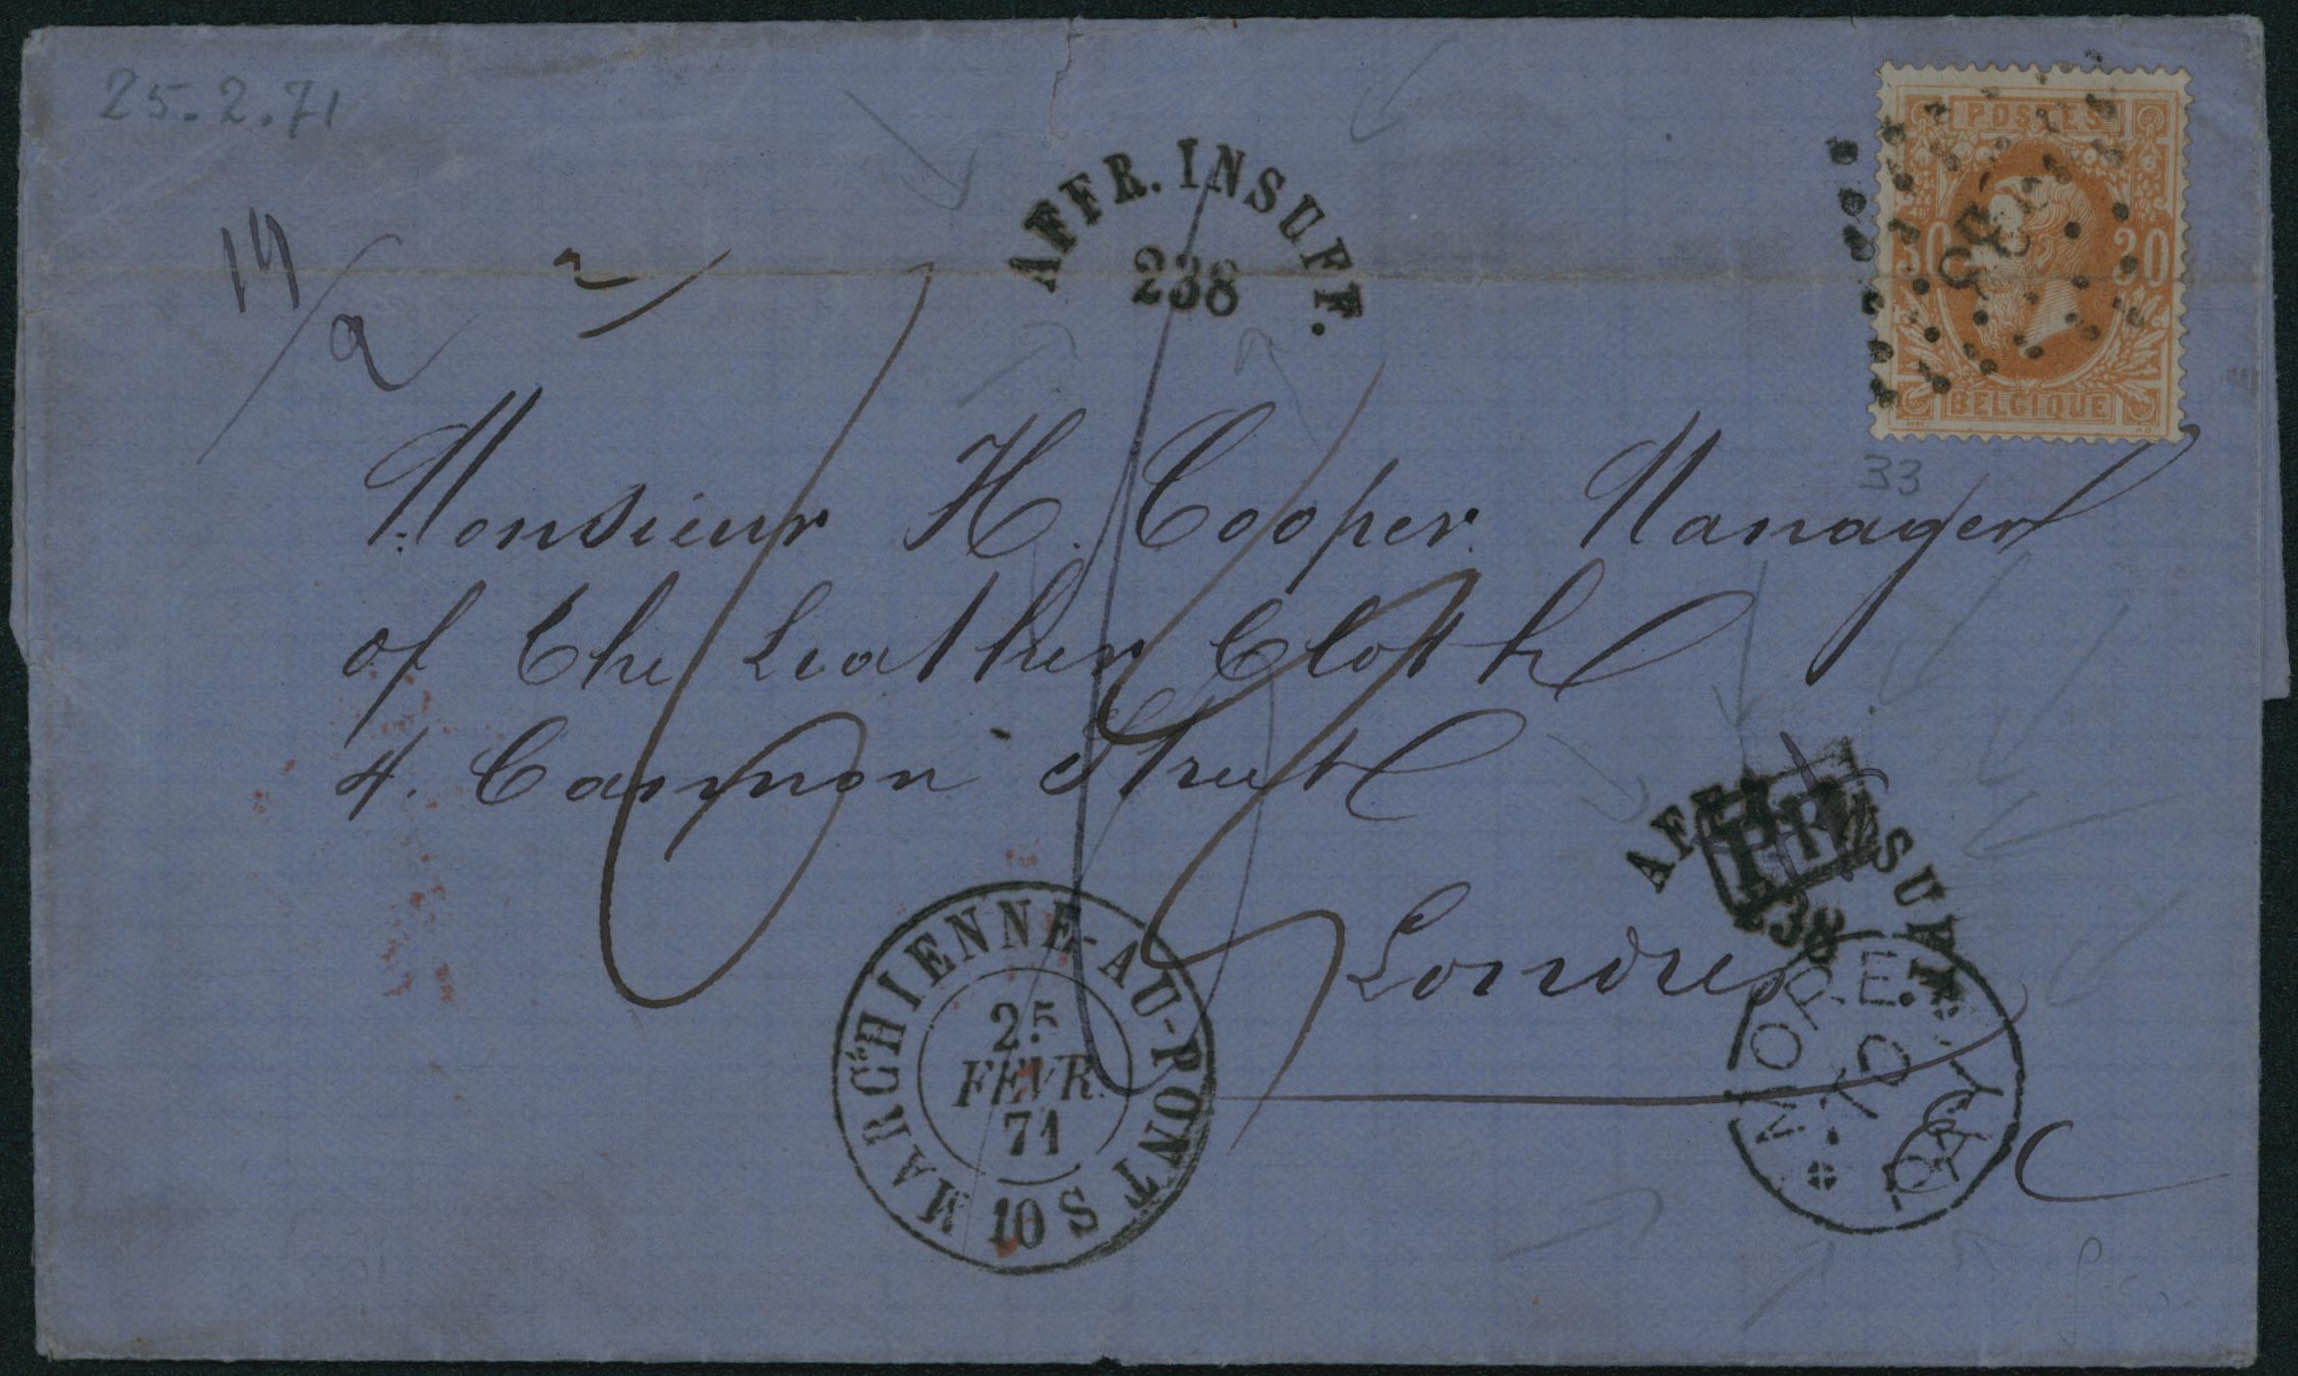 25.2.71
14/2
AFFR. INSUFF.
238
POSTES
30 30
BELGIQUE
33
Monsieur H. Cooper Manager
of the Leather Cloth
4. Cannon Street
Londres
AFFR. INSUFF.
238
MORE-TO-PAY
MARCHIENNE-AU-PONT
25
FÉVR.
71
10 S